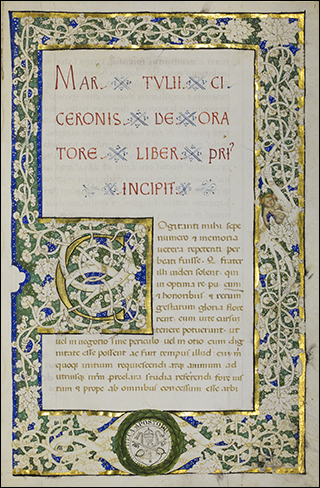 MAR. TVLII. CI
CERONIS. DE ORA
TORE. LIBER. PRI?
INCIPIT.
COgitanti mihi sepe
numero & memoria
vetera repetenti per
beati fuisse. Q. frater
illi videri solent. qui
in optima re. pu. cum
& honoribus & rerum
gestarum gloria flore
rent. eum vite cursum
tenere potuerunt. ut
vel in negotio sine periculo vel in otio cum dig
nitate esse possent. ac fuit tempus illud. cum m
quoq initium requiescendi atq animum ad
utriusq nrm preclara studia referendi fore ius
tum & prope ab omnibus concessum esse arbi